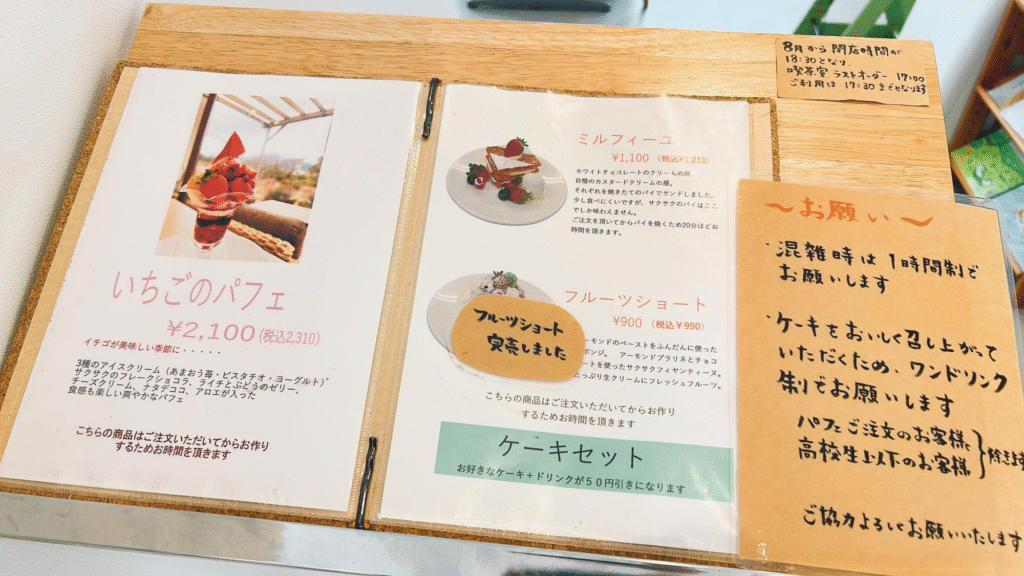 いちごのパフェ
¥2,100(税込2,310)
イチゴが美味しい季節に・・・・・
3種のアイスクリーム（あまおう苺・ピスタチオ・ヨーグルト）
サクサクのフレークショコラ、ライチとぶどうのゼリー、
チーズクリーム、ナタデココ、アロエが入った
食感も楽しい爽やかなパフェ
こちらの商品はご注文いただいてからお作り
するためお時間を頂きます
ミルフィーユ
¥1,100（税込¥1,210）
ホワイトチョコレートのクリームの層、
自慢のカスタードクリームの層。
それぞれを焼きたてのパイでサンドしました。
少し食べにくいですが、サクサクのパイはここ
でしか味わえません。
ご注文を頂いてからパイを焼くため20分ほどお
時間を頂きます。
フルーツショート
¥900（税込￥990）
ーモンドのペーストをふんだんに使った
ポンジ。 アーモンドプラリネとチョコ
ートを使ったサクサクフィヤンティーヌ。
たっぷり生クリームにフレッシュフルーツ。
フルーツショート
完売しました
こちらの商品はご注文いただいてからお作り
するためお時間を頂きます
ケーキセット
お好きなケーキ＋ドリンクが５０円引きになります
8月から 閉店時間が
18:30となり、
喫茶室 ラストオーダー 17:00
ご利用は 17:30までとなります
〜お願い〜
・混雑時は1時間制で
お願いします
・ケーキをおいしく召し上がって
いただくため、ワンドリンク
制でお願いします
パフェご注文のお客様
高校生以下のお客様
除きます
ご協力よろしくお願いいたします